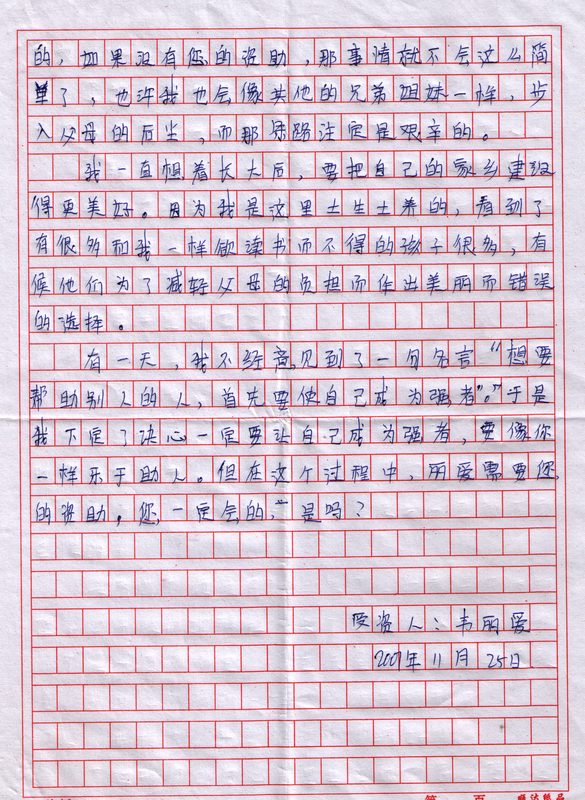 的，如果没有您的资助，那事情就不会这么简
单了，也许我也会像其他的兄弟姐妹一样，步
入父母的后尘，而那条路注定是艰辛的。
我一直想着长大后，要把自己的家乡建设
得更美好。因为我是这里土生土养的，看到了
有很多和我一样欲读书而不得的孩子很多，有
候他们为了减轻父母的负担而作出美丽而错误
的选择。
有一天，我不经意见到了一句名言“想要
帮助别人的人，首先要使自己成为强者”。于是
我下定了决心一定要让自己成为强者，要像你
一样乐于助人。但在这个过程中，丽爱需要您
的资助，您一定会的，是吗？
受资人：韦丽爱
2007年11月25日
第 页